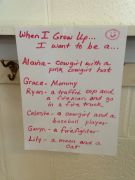 When I Grow Up...
I want to be a...
Alaina - Cowgirl with a
pink cowgirl hat
Grace - Mommy
Ryan - a traffic cop and
a fireman and go
in a fire truck
Celeste - a cowgirl and a
baseball player
Gavyn - a firefighter
Lily - a mean and a
cat